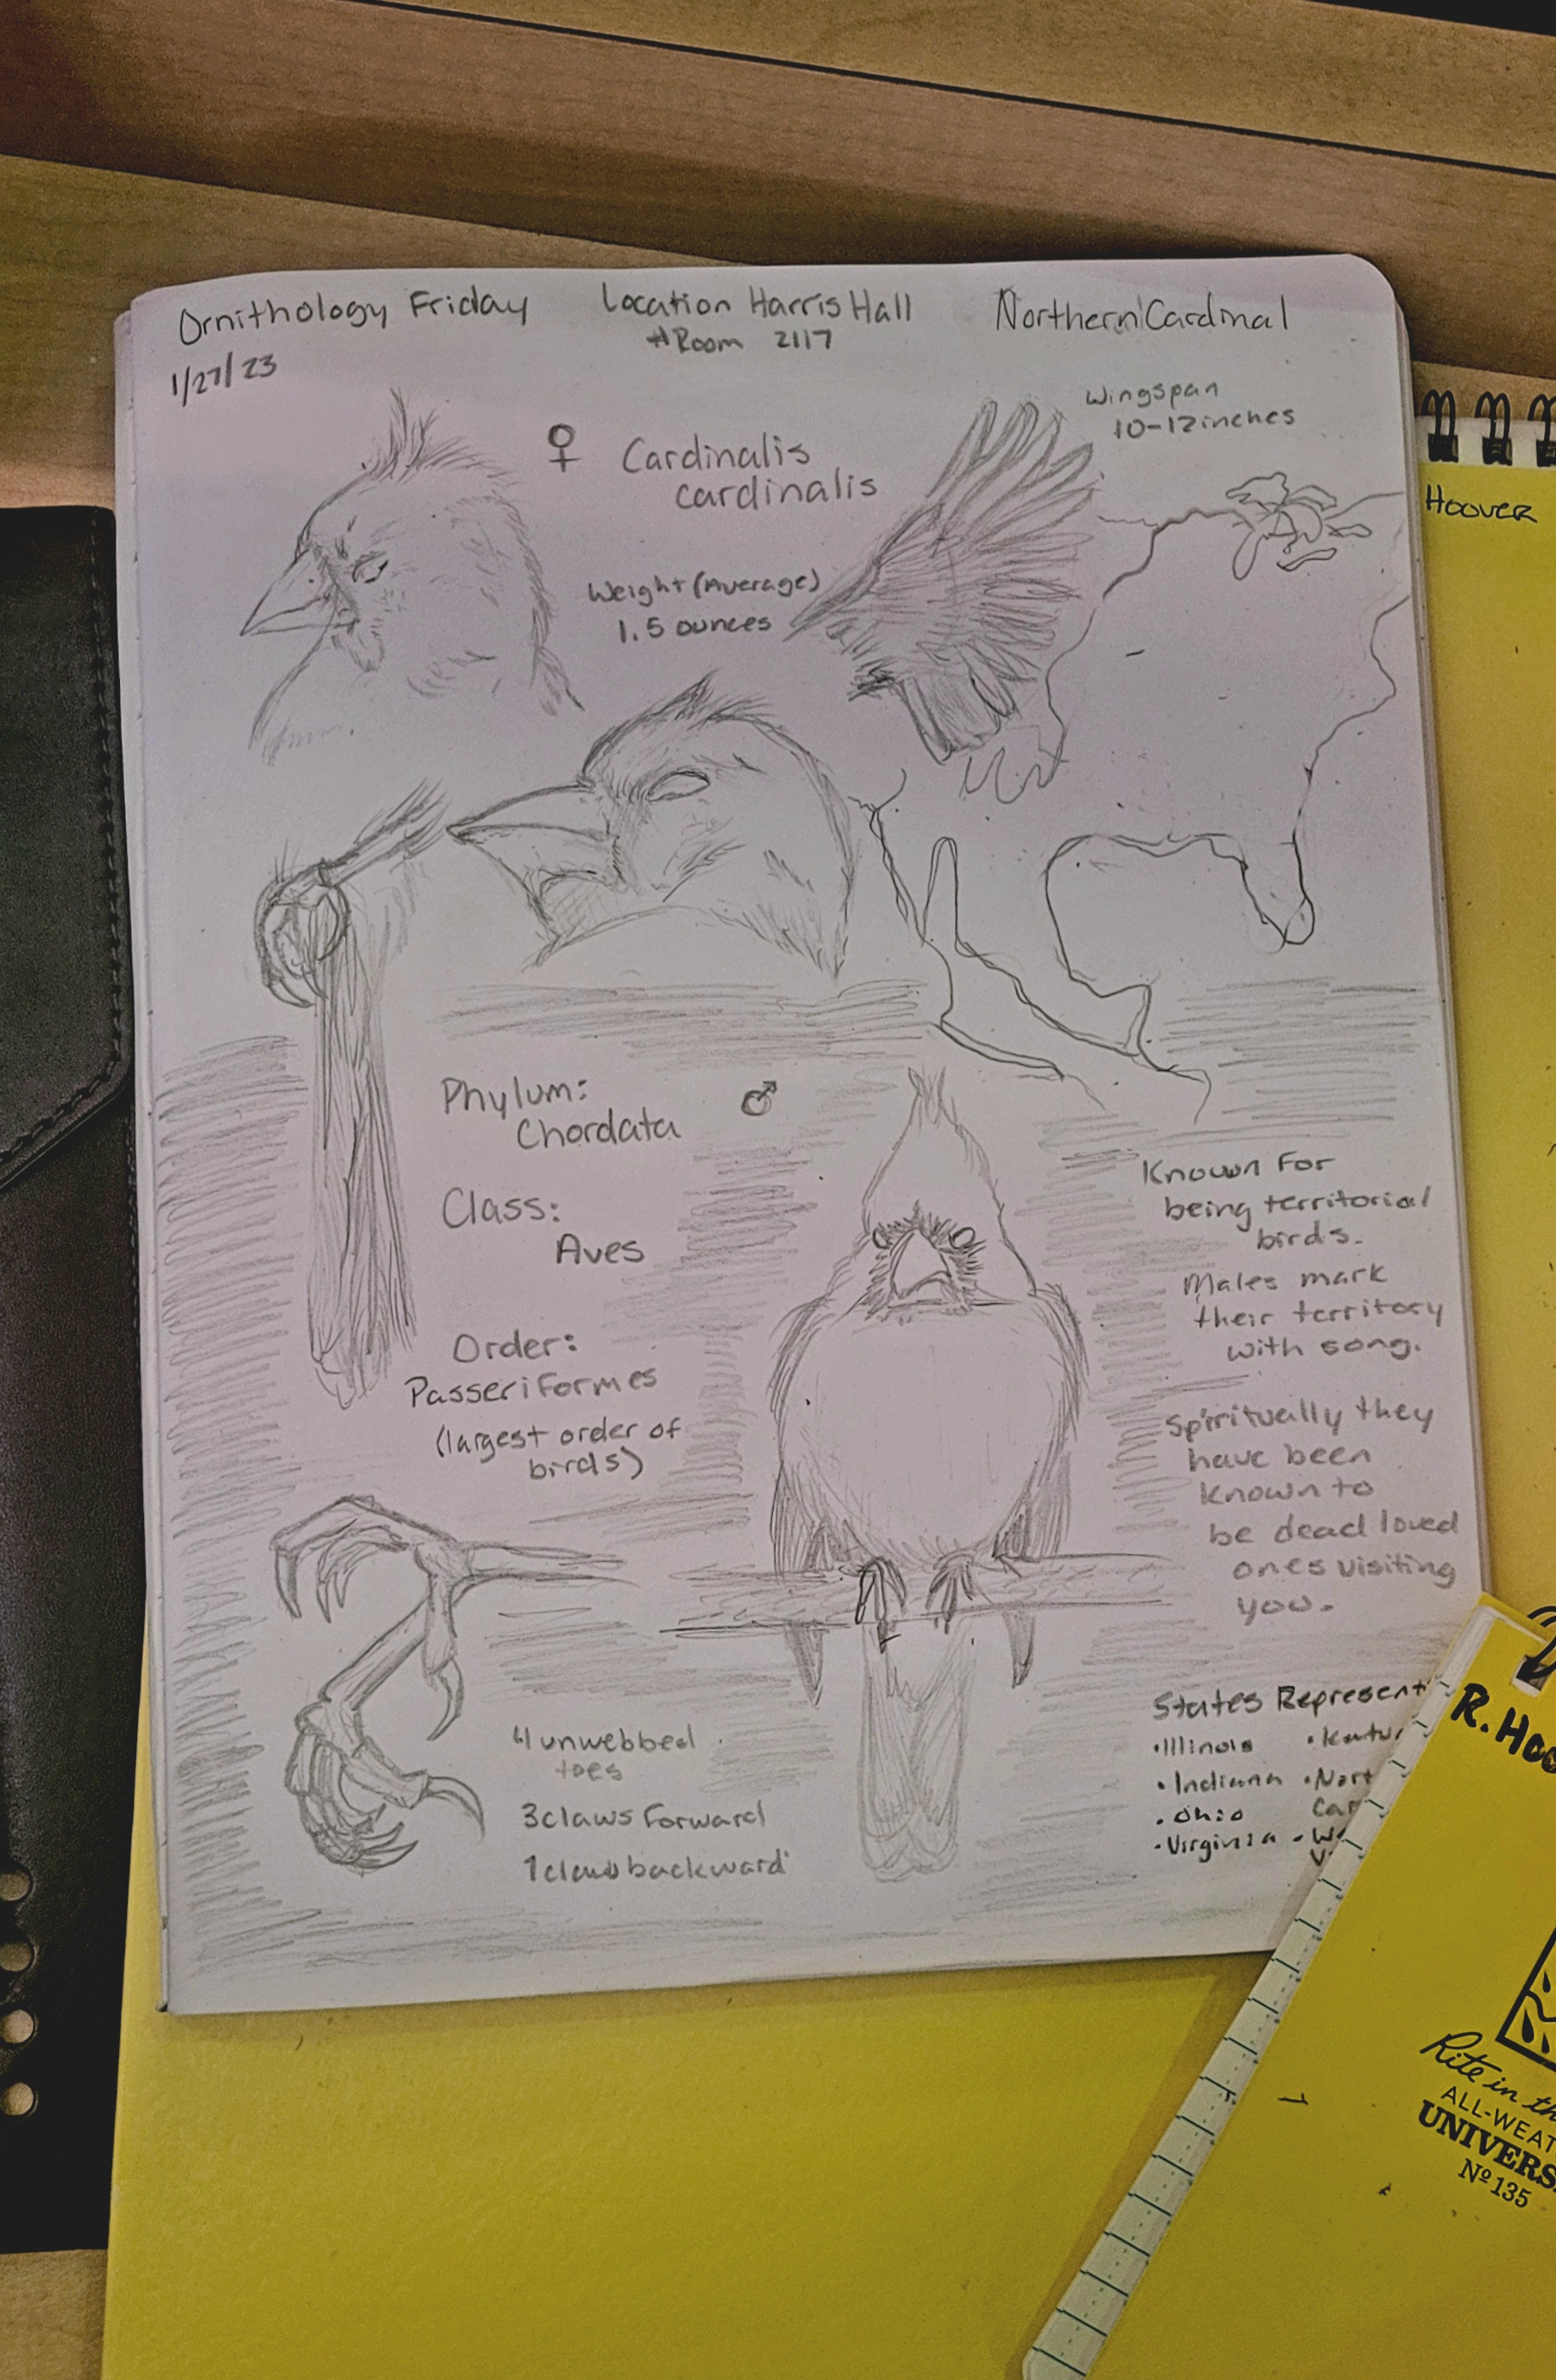 Ornithology Friday
1/27/23
Location Harris Hall
#Room 2117
Northern Cardinal
♀ Cardinalis
cardinalis
Wingspan
10-12 inches
Weight (Average)
1.5 ounces
Phylum:
Chordata
♂
Class:
Aves
Order:
Passeriformes
(largest order of
birds)
Known For
being territorial
birds.
Males mark
their territory
with song.
Spiritually they
have been
known to
be dead loved
ones visiting
you.
4 unwebbed
toes
3 claws Forward
1 claw backward
States Represent
•Illinois
•Indiana •Nort
•Ohio Car
•Virginia
Hoover
R. Hoo
Rite in th
ALL-WEAT
UNIVERS
Nº 135